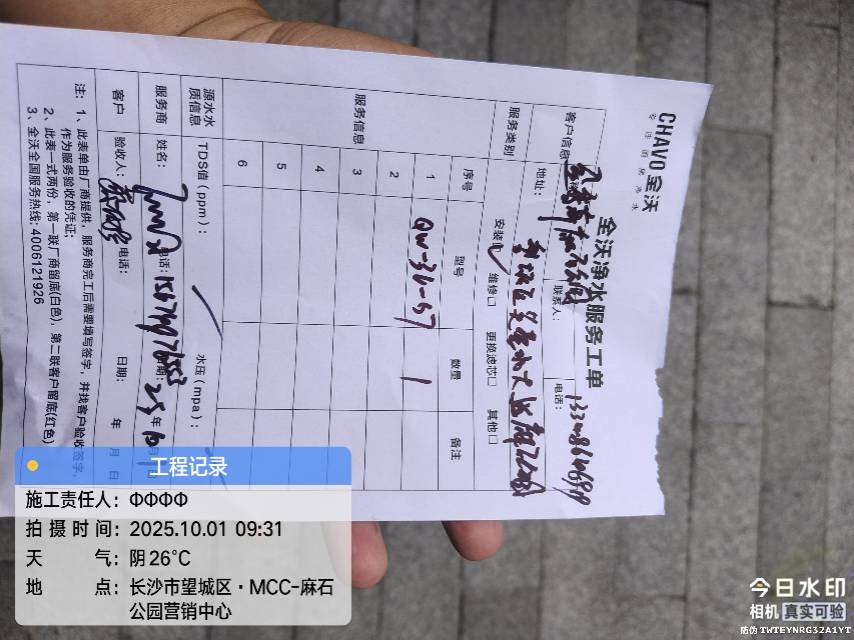 CHAVO全沃
专注酒店净水
全沃净水服务工单
客户信息
联系人：
电话：
地址：
服务类别
安装 维修□ 更换滤芯□ 其他□
服务信息
序号 型号 数量 备注
1 QW-36-57 1
2
3
4
5
6
源水水质信息
TDS值（ppm）：
水压（mpa）：
服务商 姓名： 电话： 日期： 25年 月 日
客户 验收人： 电话： 日期： 年 月 日
注：1、此表单由厂商提供，服务商完工后需要填写签字，并找客户验收签字，
作为服务验收的凭证；
2、此表一式两份，第一联厂商留底(白色)，第二联客户留底(红色)
3、全沃全国服务热线：4006121926
工程记录
施工责任人：ФФФФ
拍摄时间：2025.10.01 09:31
天气：阴 26℃
地点：长沙市望城区·MCC-麻石
公园营销中心
今日水印
相机 真实可验
防伪 TWTEYNRG32A1YT